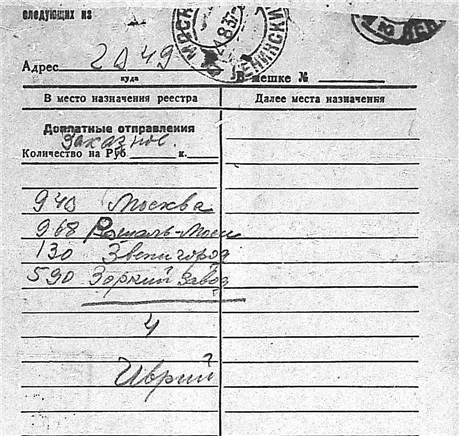 следующих из
Адрес 20 49
куда
В мешке № 
В место назначения реестра
Далее места назначения
Доплатные отправления
Заказное.
Количество на Руб. к.
940 Москва
968 Рошаль-Моск
130 Звенигород
590 Зоркий Завод
4